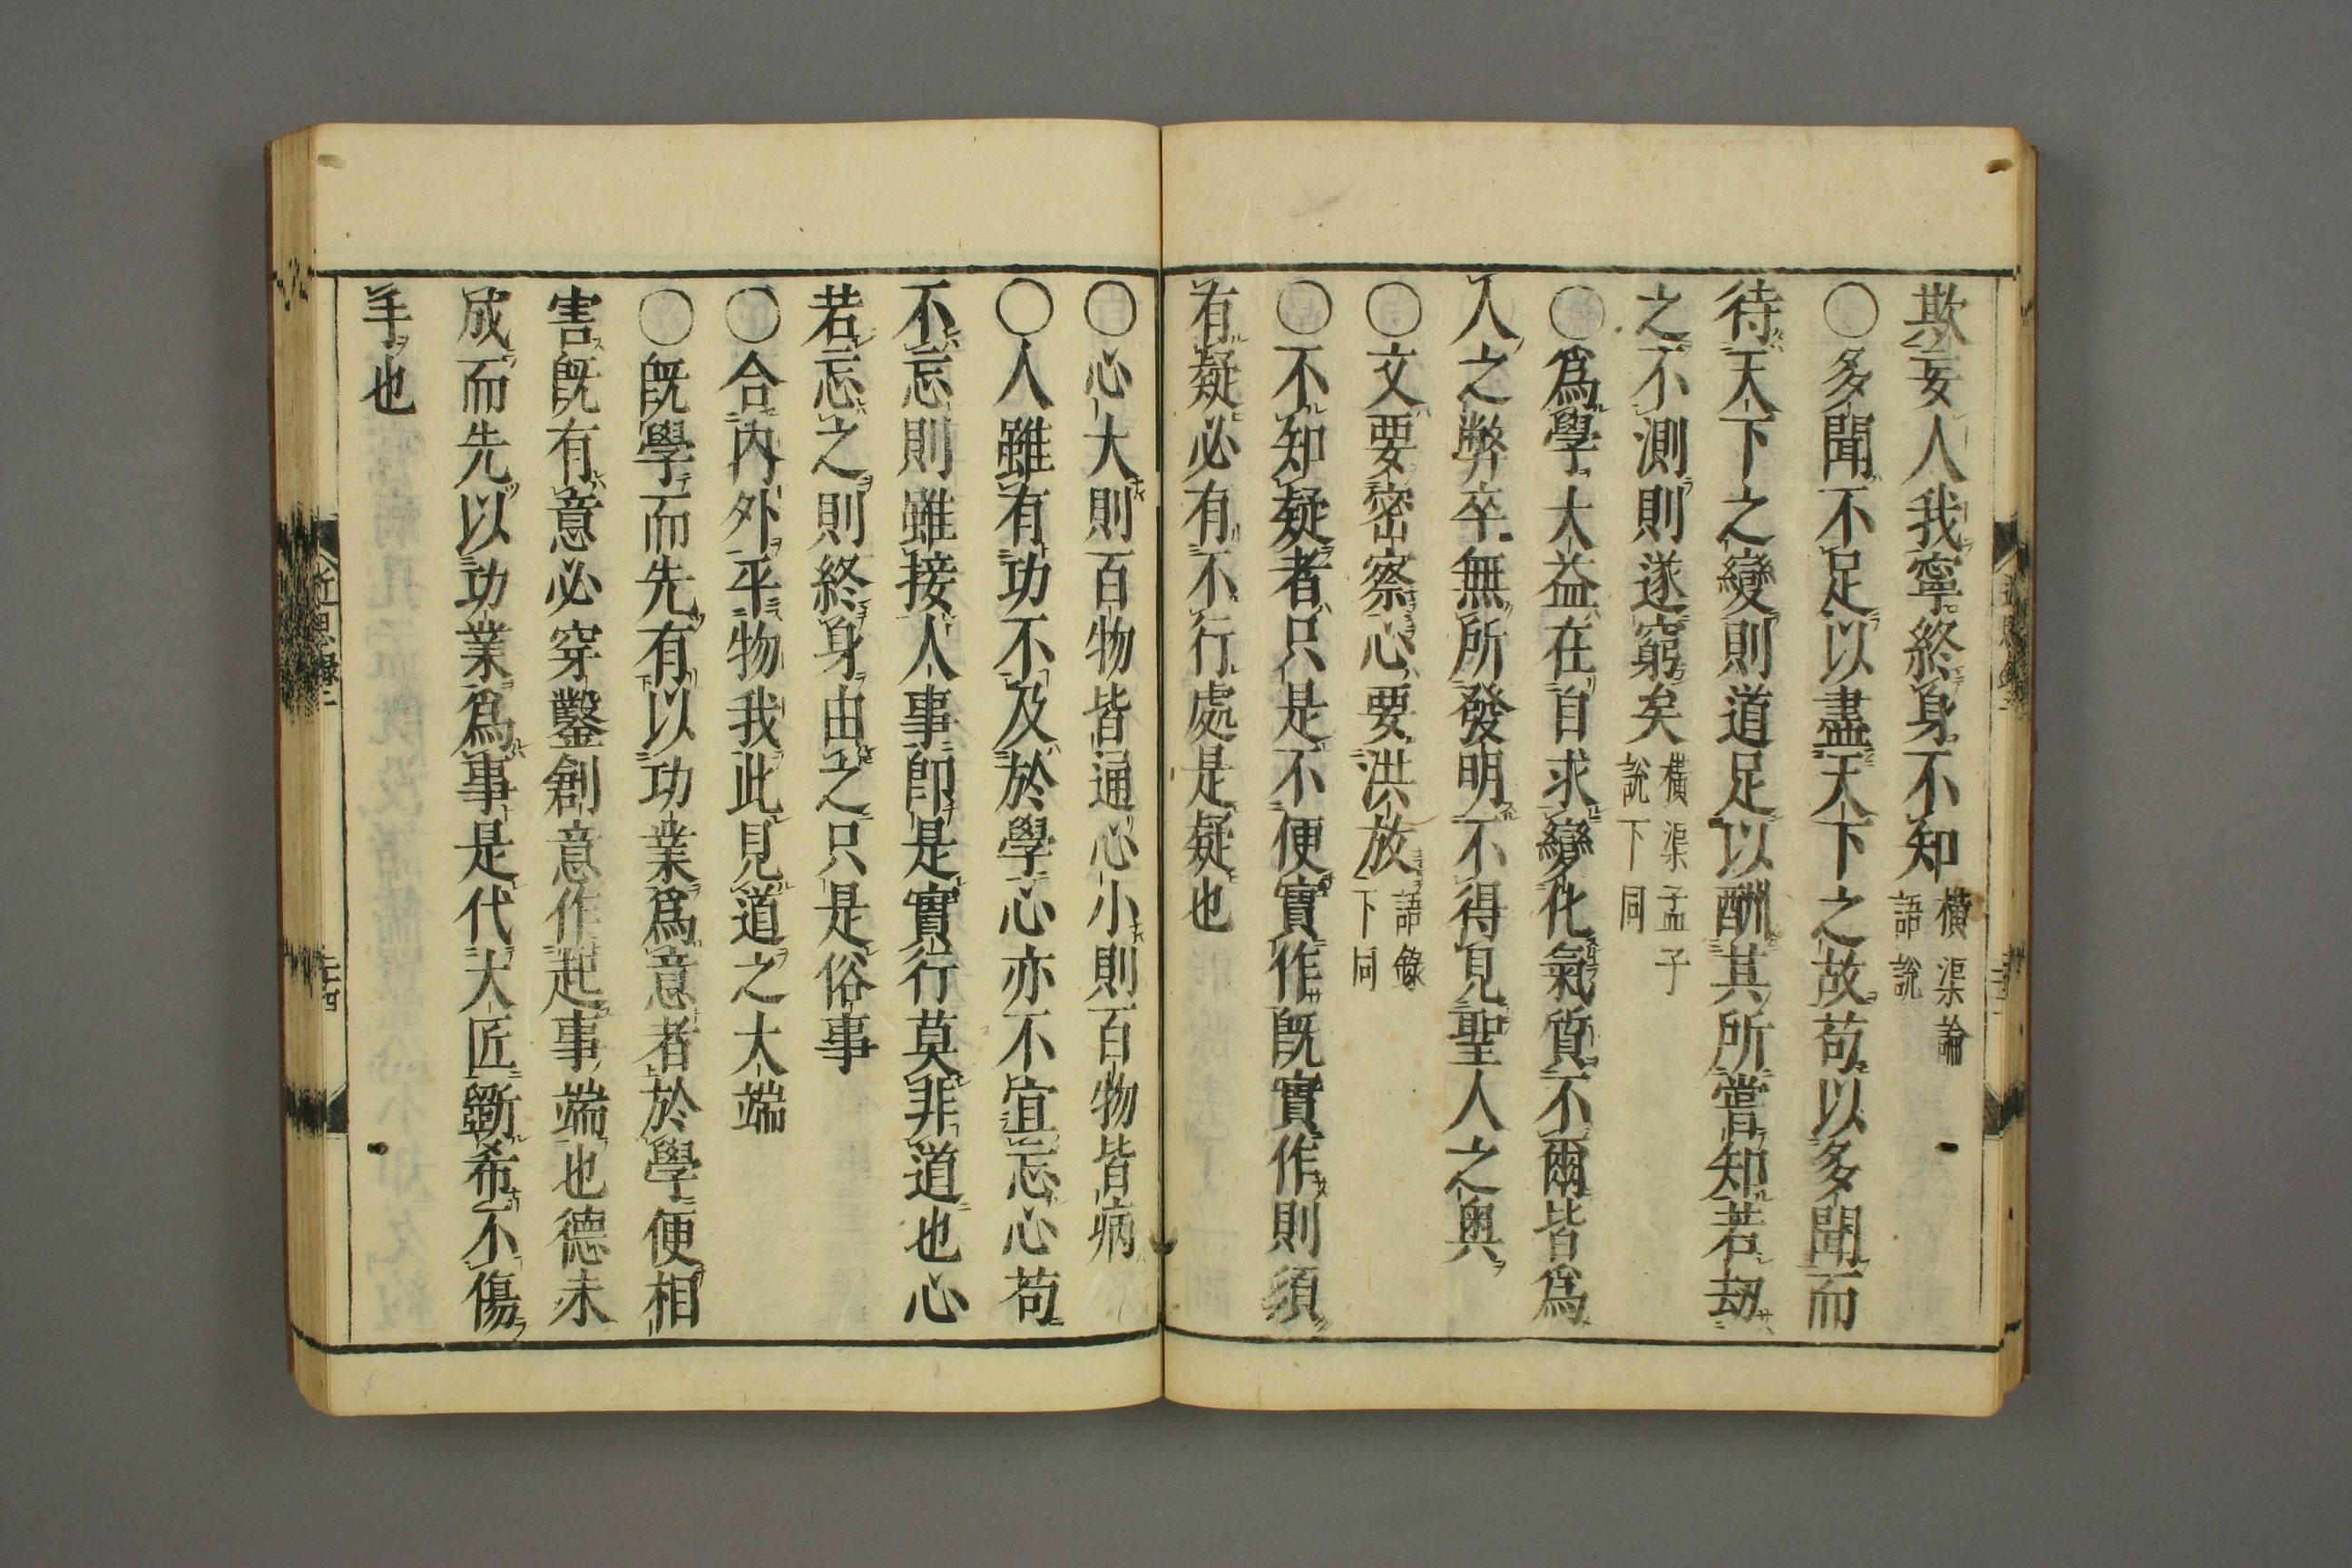 欺妄人我寧終身不知橫渠論語說
〇多聞不足以盡天下之故苟以多聞而
待天下之變則道足以酬其所嘗知若劫
之不測則遂窮矣橫渠孟子說下同
〇爲學大益在自求變化氣質不爾皆爲
人之弊卒無所發明不得見聖人之奥
〇文要密察心要洪放語錄下同
〇不知疑者只是不便實作旣實作則須
有疑必有不行處是疑也
〇心大則百物皆通心小則百物皆病
〇人雖有功不及於學心亦不宜忘心苟
不忘則雖接人事卽是實行莫非道也心
若忘之則終身由之只是俗事
〇合內外平物我此見道之大端
〇旣學而先有以功業爲意者於學便相
害旣有意必穿鑿創意作起事端也德未
成而先以功業爲事是代大匠斲希不傷
手也
近思錄二
二十四